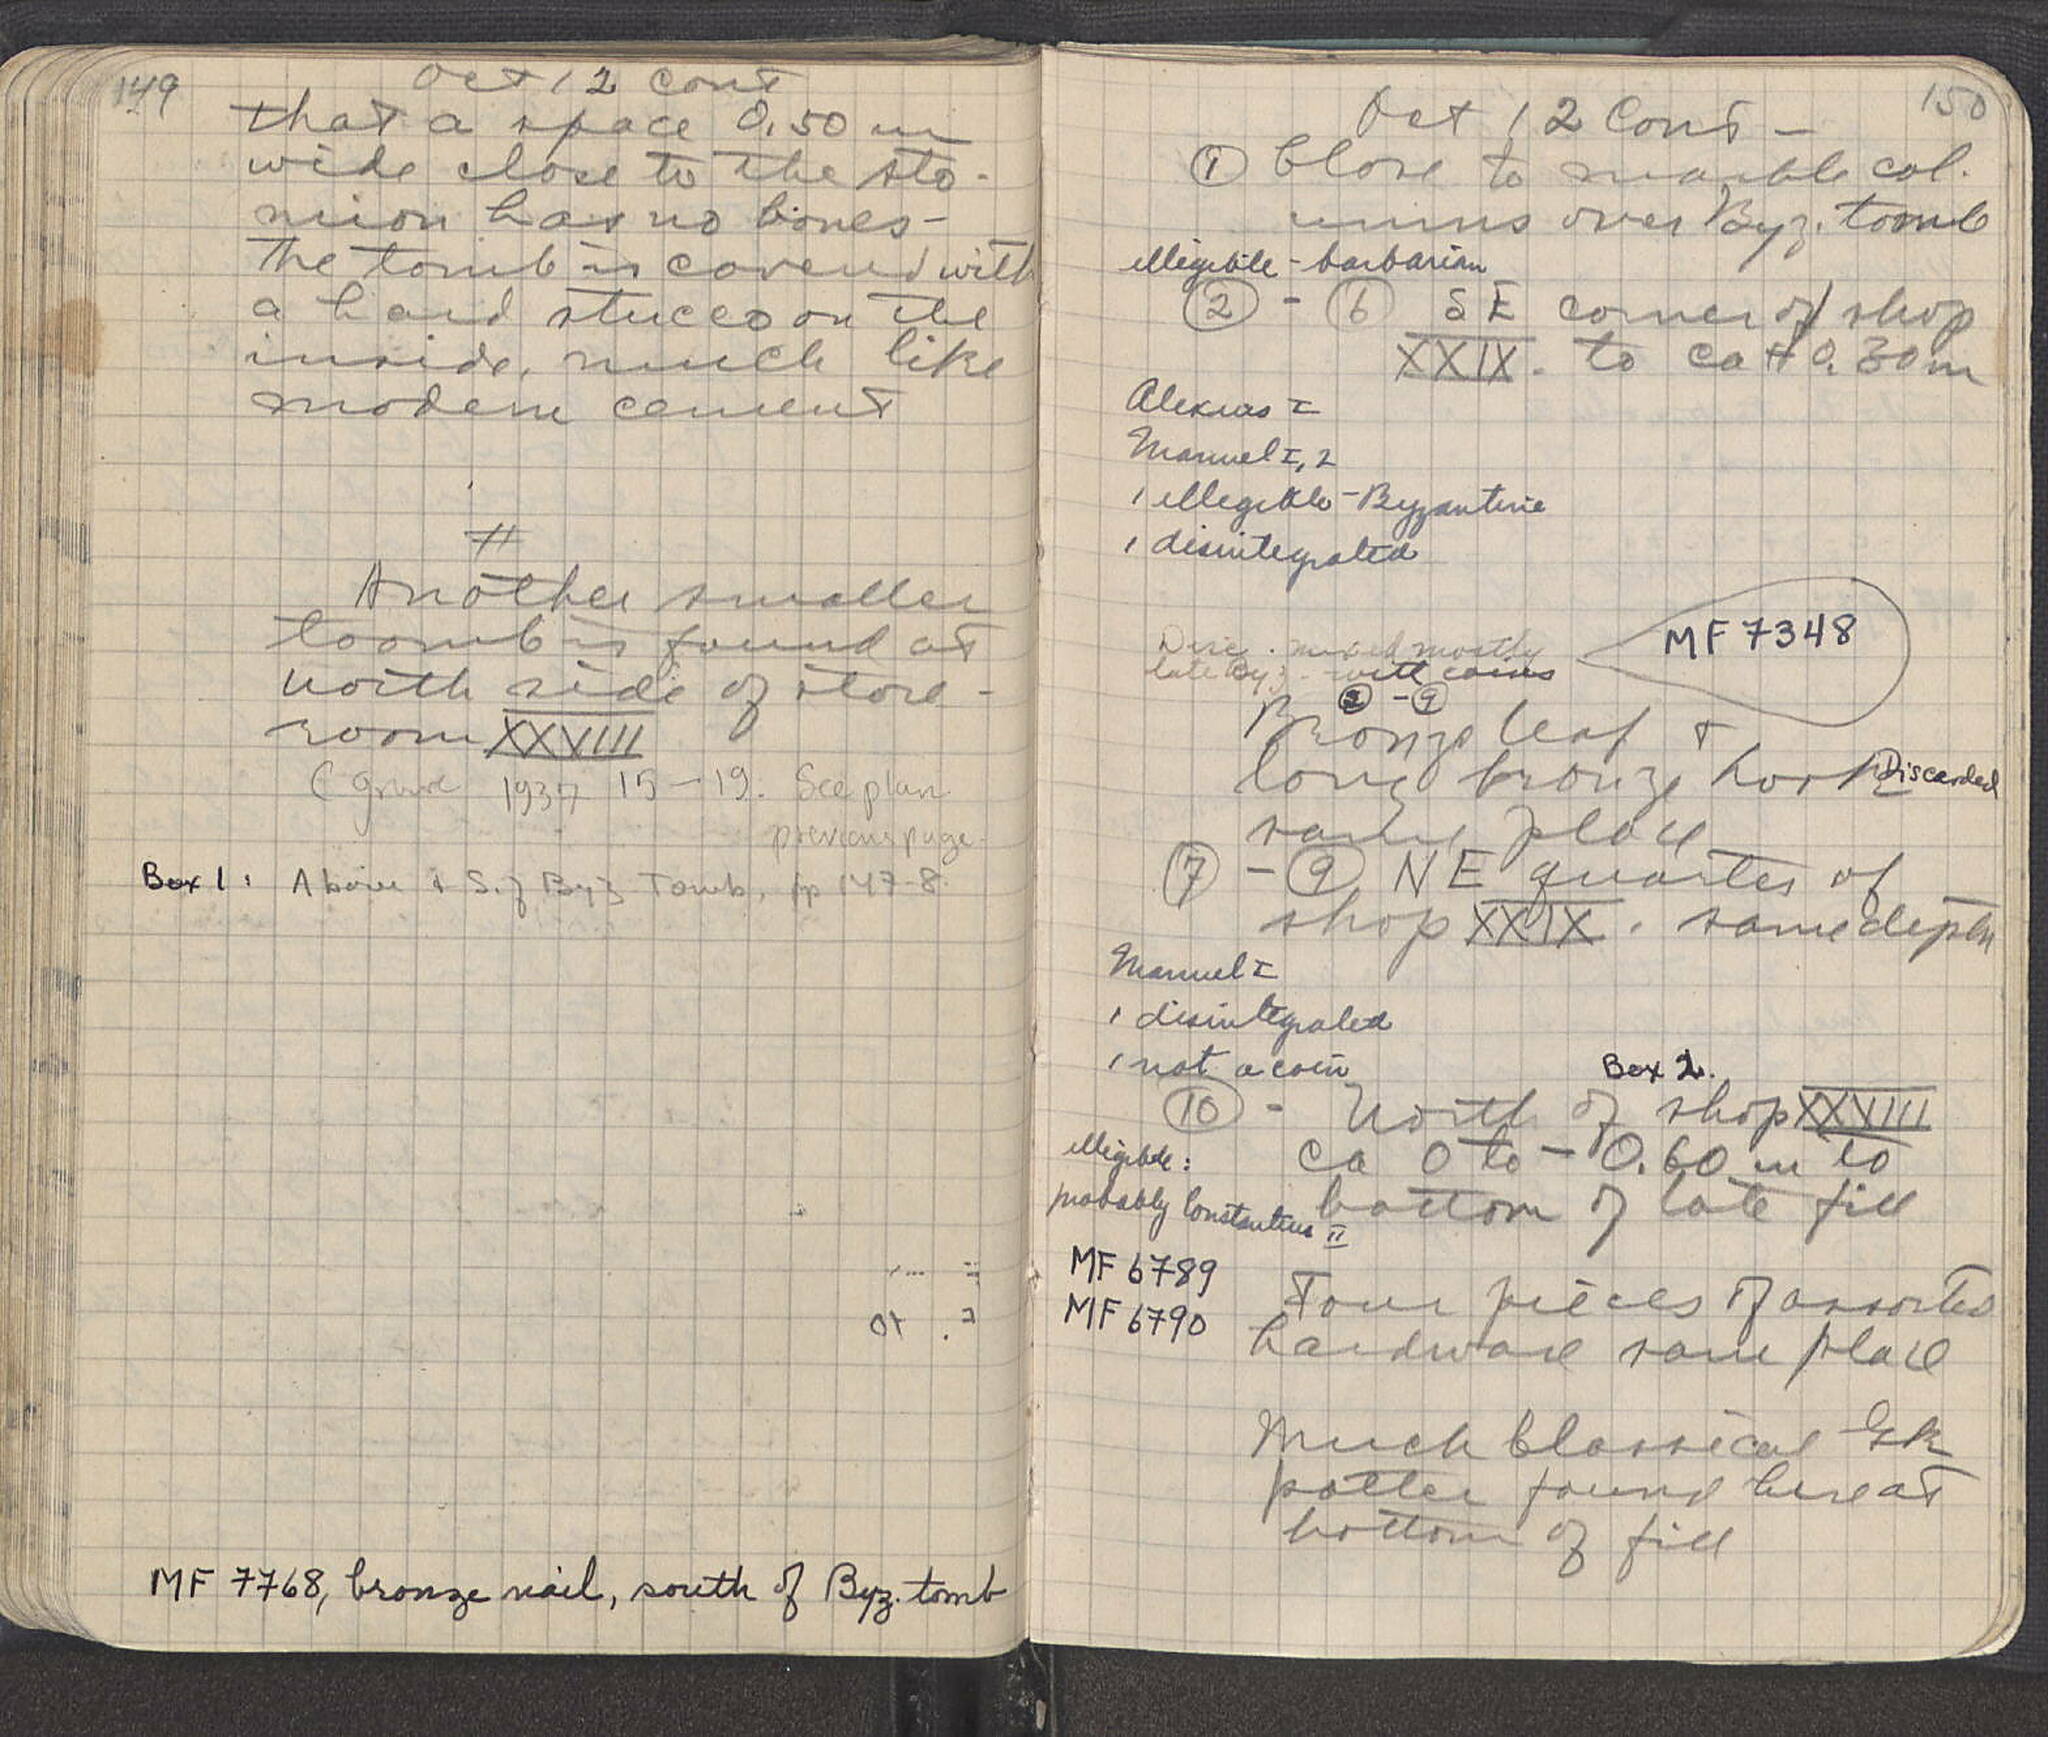 149
Oct 12 cont
that a space 0.50 m
wide close to the sto-
mion has no bones-
The tomb is covered with
a hard stucco on the
inside, much like
modern cement
#
Another smaller
toomb is found at
north side of store-
room XXVIII
(Grave 1937 15-19. See plan
previous page.
Box 1: Above & S. of Byz Tomb, pp 147-8.
MF 7768, bronze nail, south of Byz. tomb
150
Oct 12 Cont -
① Close to marble col.
umns over Byz. tomb
illegible - barbarian
② - ⑥ SE corner of shop
XXIX. to ca + 0.30 m
Alexius I
Manuel I, 2
1 illegible - Byzantine
1 disintegrated
MF 7348
Disc. mixed mostly
late Byz. with coins
② - ⑨
Bronze leaf +
long bronze hook Discarded
same place
⑦ - ⑨ NE quarter of
shop XXIX. same depth
Manuel I
1 disintegrated
1 not a coin
Box 2.
⑩ - North of shop XXVIII
illegible:
ca 0 to - 0.60 m to
probably Constantius II
bottom of late fill
MF 6789
MF 6790
Four pieces of assorted
hardware same place
Much Classical Gk
potter found here at
bottom of fill